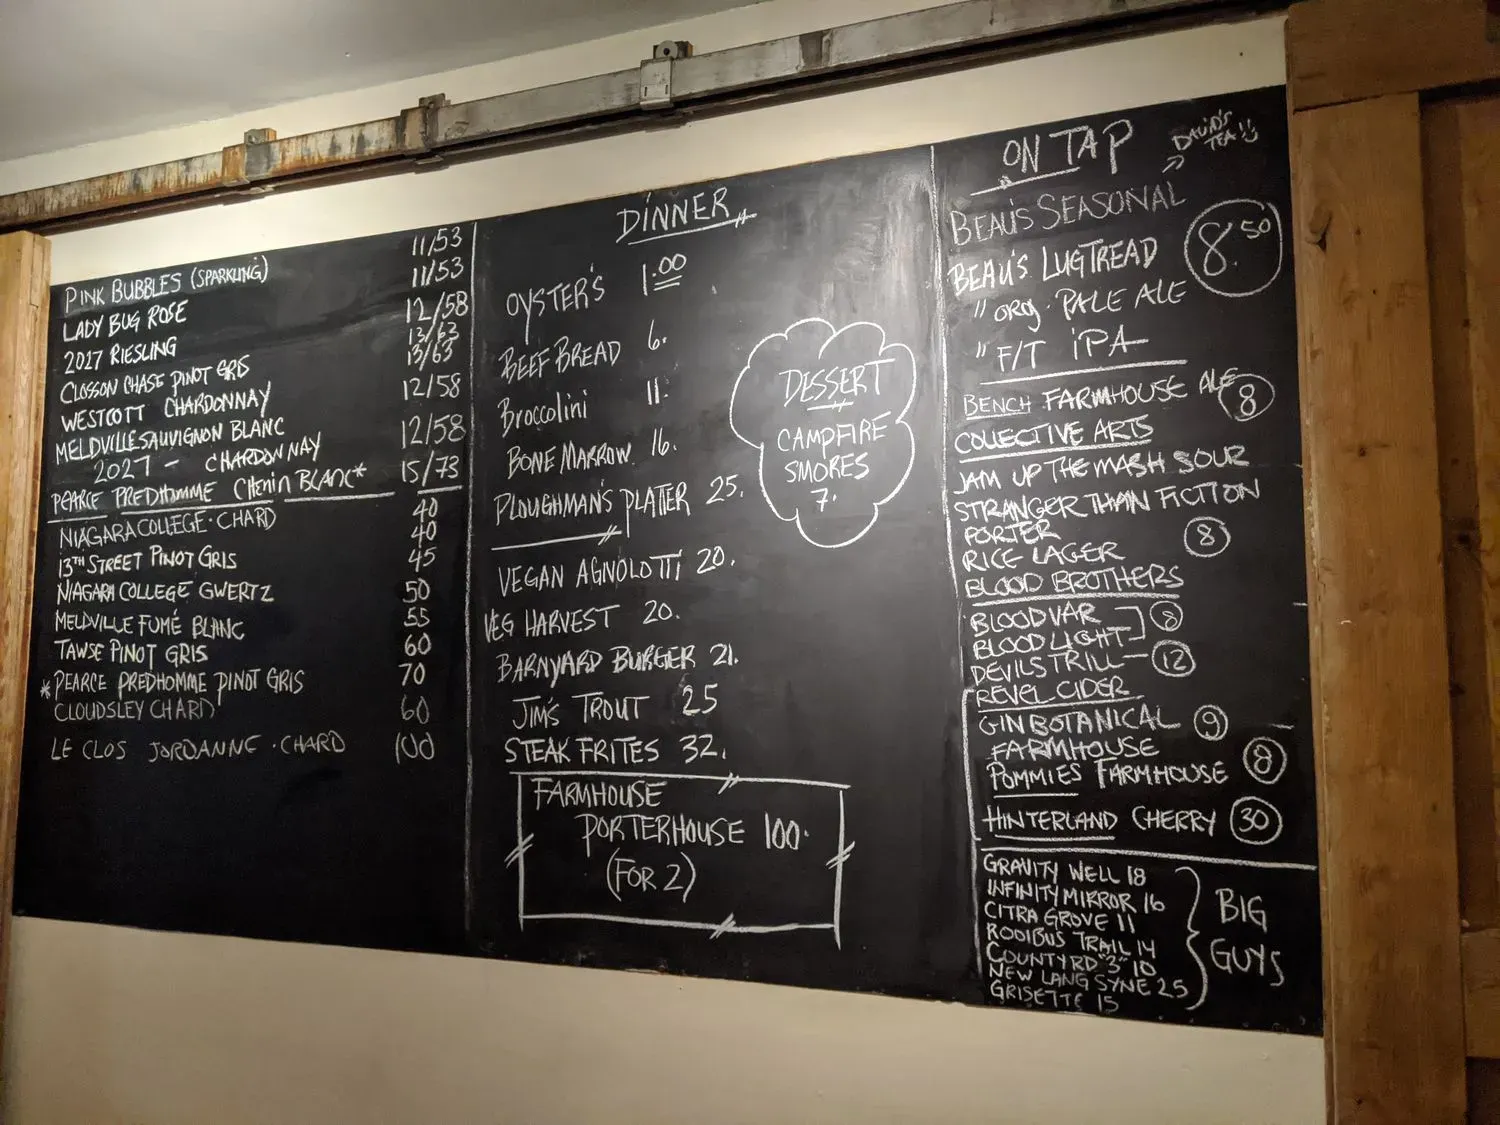 PINK BUBBLES (SPARKLING) 11/53
LADY BUG ROSE 11/53
2027 RIESLING 12/58
CLOSSON CHASE PINOT GRIS 13/63
WESTCOTT CHARDONNAY 13/63
MELDVILLE SAUVIGNON BLANC 12/58
2027 - CHARDONNAY 12/58
PEARCE PREDHOMME CHENIN BLANC* 15/73
NIAGARA COLLEGE · CHARD 40
13TH STREET PINOT GRIS 40
NIAGARA COLLEGE GWERTZ 45
MELDVILLE FUMÉ BLANC 50
TAWSE PINOT GRIS 55
*PEARCE PREDHOMME PINOT GRIS 60
CLOUDSLEY CHARD 70
60
LE CLOS JORDANNE · CHARD 100
DINNER
OYSTER'S 1.00
BEEF BREAD 6.
Broccolini 11.
BONE MARROW 16.
PLOUGHMAN'S PLATTER 25.
VEGAN AGNOLOTTI 20.
VEG HARVEST 20.
BARNYARD BURGER 21.
JIM'S TROUT 25
STEAK FRITES 32.
FARMHOUSE
PORTERHOUSE 100.
(FOR 2)
DESSERT
CAMPFIRE
SMORES
7.
ON TAP
DAVID'S
TEA!!
BEAU'S SEASONAL
BEAU'S LUGTREAD 8.50
" ORG. PALE ALE
" F/T IPA
BENCH FARMHOUSE ALE 8
COLLECTIVE ARTS
JAM UP THE MASH SOUR
STRANGER THAN FICTION
PORTER 8
RICE LAGER
BLOOD BROTHERS
BLOODVAR 8
BLOOD LIGHT
DEVILS TRILL 12
REVEL CIDER
GIN BOTANICAL 9
FARMHOUSE
POMMIES FARMHOUSE 8
HINTERLAND CHERRY 30
GRAVITY WELL 18
INFINITY MIRROR 16
CITRA GROVE 11
ROOIBUS TRAIL 14
COUNTY RD "3" 10
NEW LANG SYNE 25
GRISETTE 15
BIG
GUYS